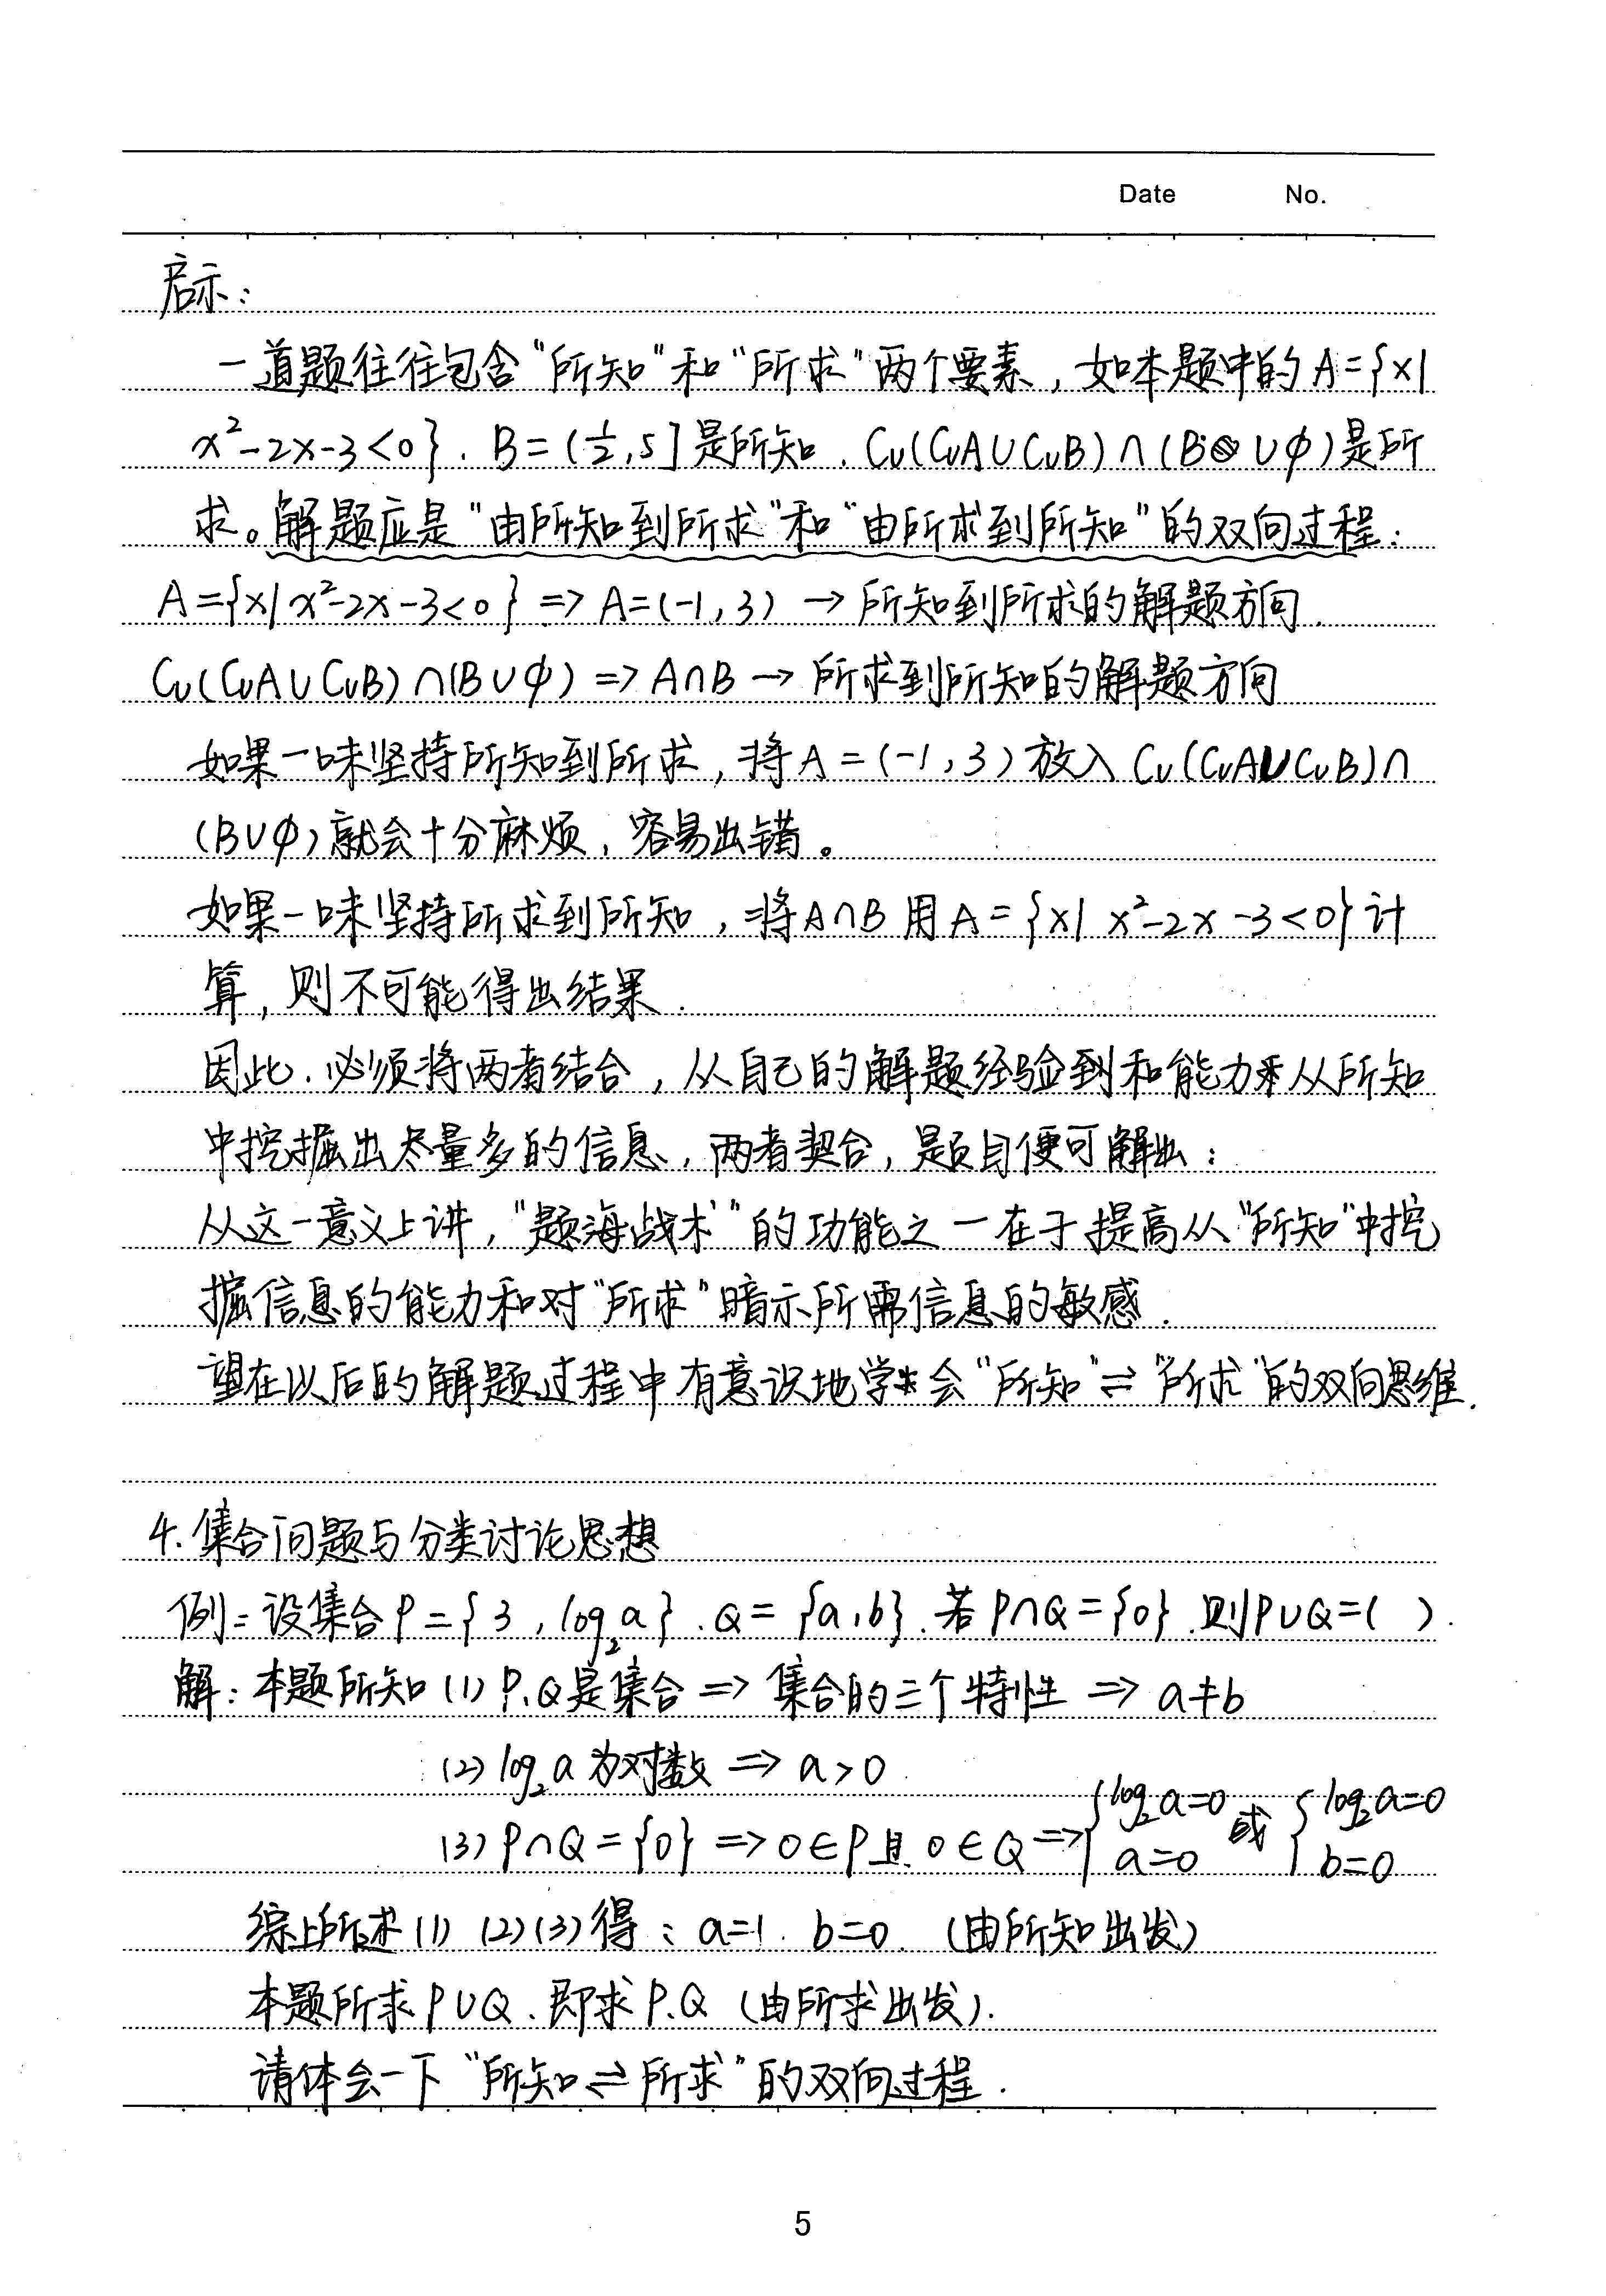 Date No.
启示:
一道题往往包含“所知”和“所求”两个要素,如本题中的A={x|
x²-2x-3<0}. B=(1/2,5]是所知. C∪(C∪A∪C∪B)∩(B∪φ)是所
求。解题应是“由所知到所求”和“由所求到所知”的双向过程:
A={x|x²-2x-3<0} => A=(-1,3) → 所知到所求的解题方向.
C∪(C∪A∪C∪B)∩(B∪φ) => A∩B → 所求到所知的解题方向
如果一味坚持所知到所求,将A=(-1,3)放入C∪(C∪A∪C∪B)∩
(B∪φ)就会十分麻烦,容易出错。
如果一味坚持所求到所知,将A∩B用A={x| x²-2x-3<0}计
算,则不可能得出结果.
因此.必须将两者结合,从自己的解题经验到和能力来从所知
中挖掘出尽量多的信息,两者契合,题目便可解出:
从这一意义上讲,“题海战术”的功能之一在于提高从“所知”中挖
掘信息的能力和对“所求”暗示所需信息的敏感.
望在以后的解题过程中有意识地学会“所知”⇌“所求”的双向思维.
4.集合问题与分类讨论思想
例:设集合P={3,log₂a}.Q={a,b}.若P∩Q={0}.则P∪Q=( ).
解:本题所知(1)P.Q是集合 => 集合的三个特性 => a≠b
(2)log₂a为对数 => a>0
(3)P∩Q={0} => 0∈P且0∈Q => {log₂a=0 a=0 或 {log₂a=0 b=0
综上所述(1)(2)(3)得:a=1. b=0.(由所知出发)
本题所求P∪Q.即求P.Q(由所求出发).
请体会一下“所知⇌所求”的双向过程.
5